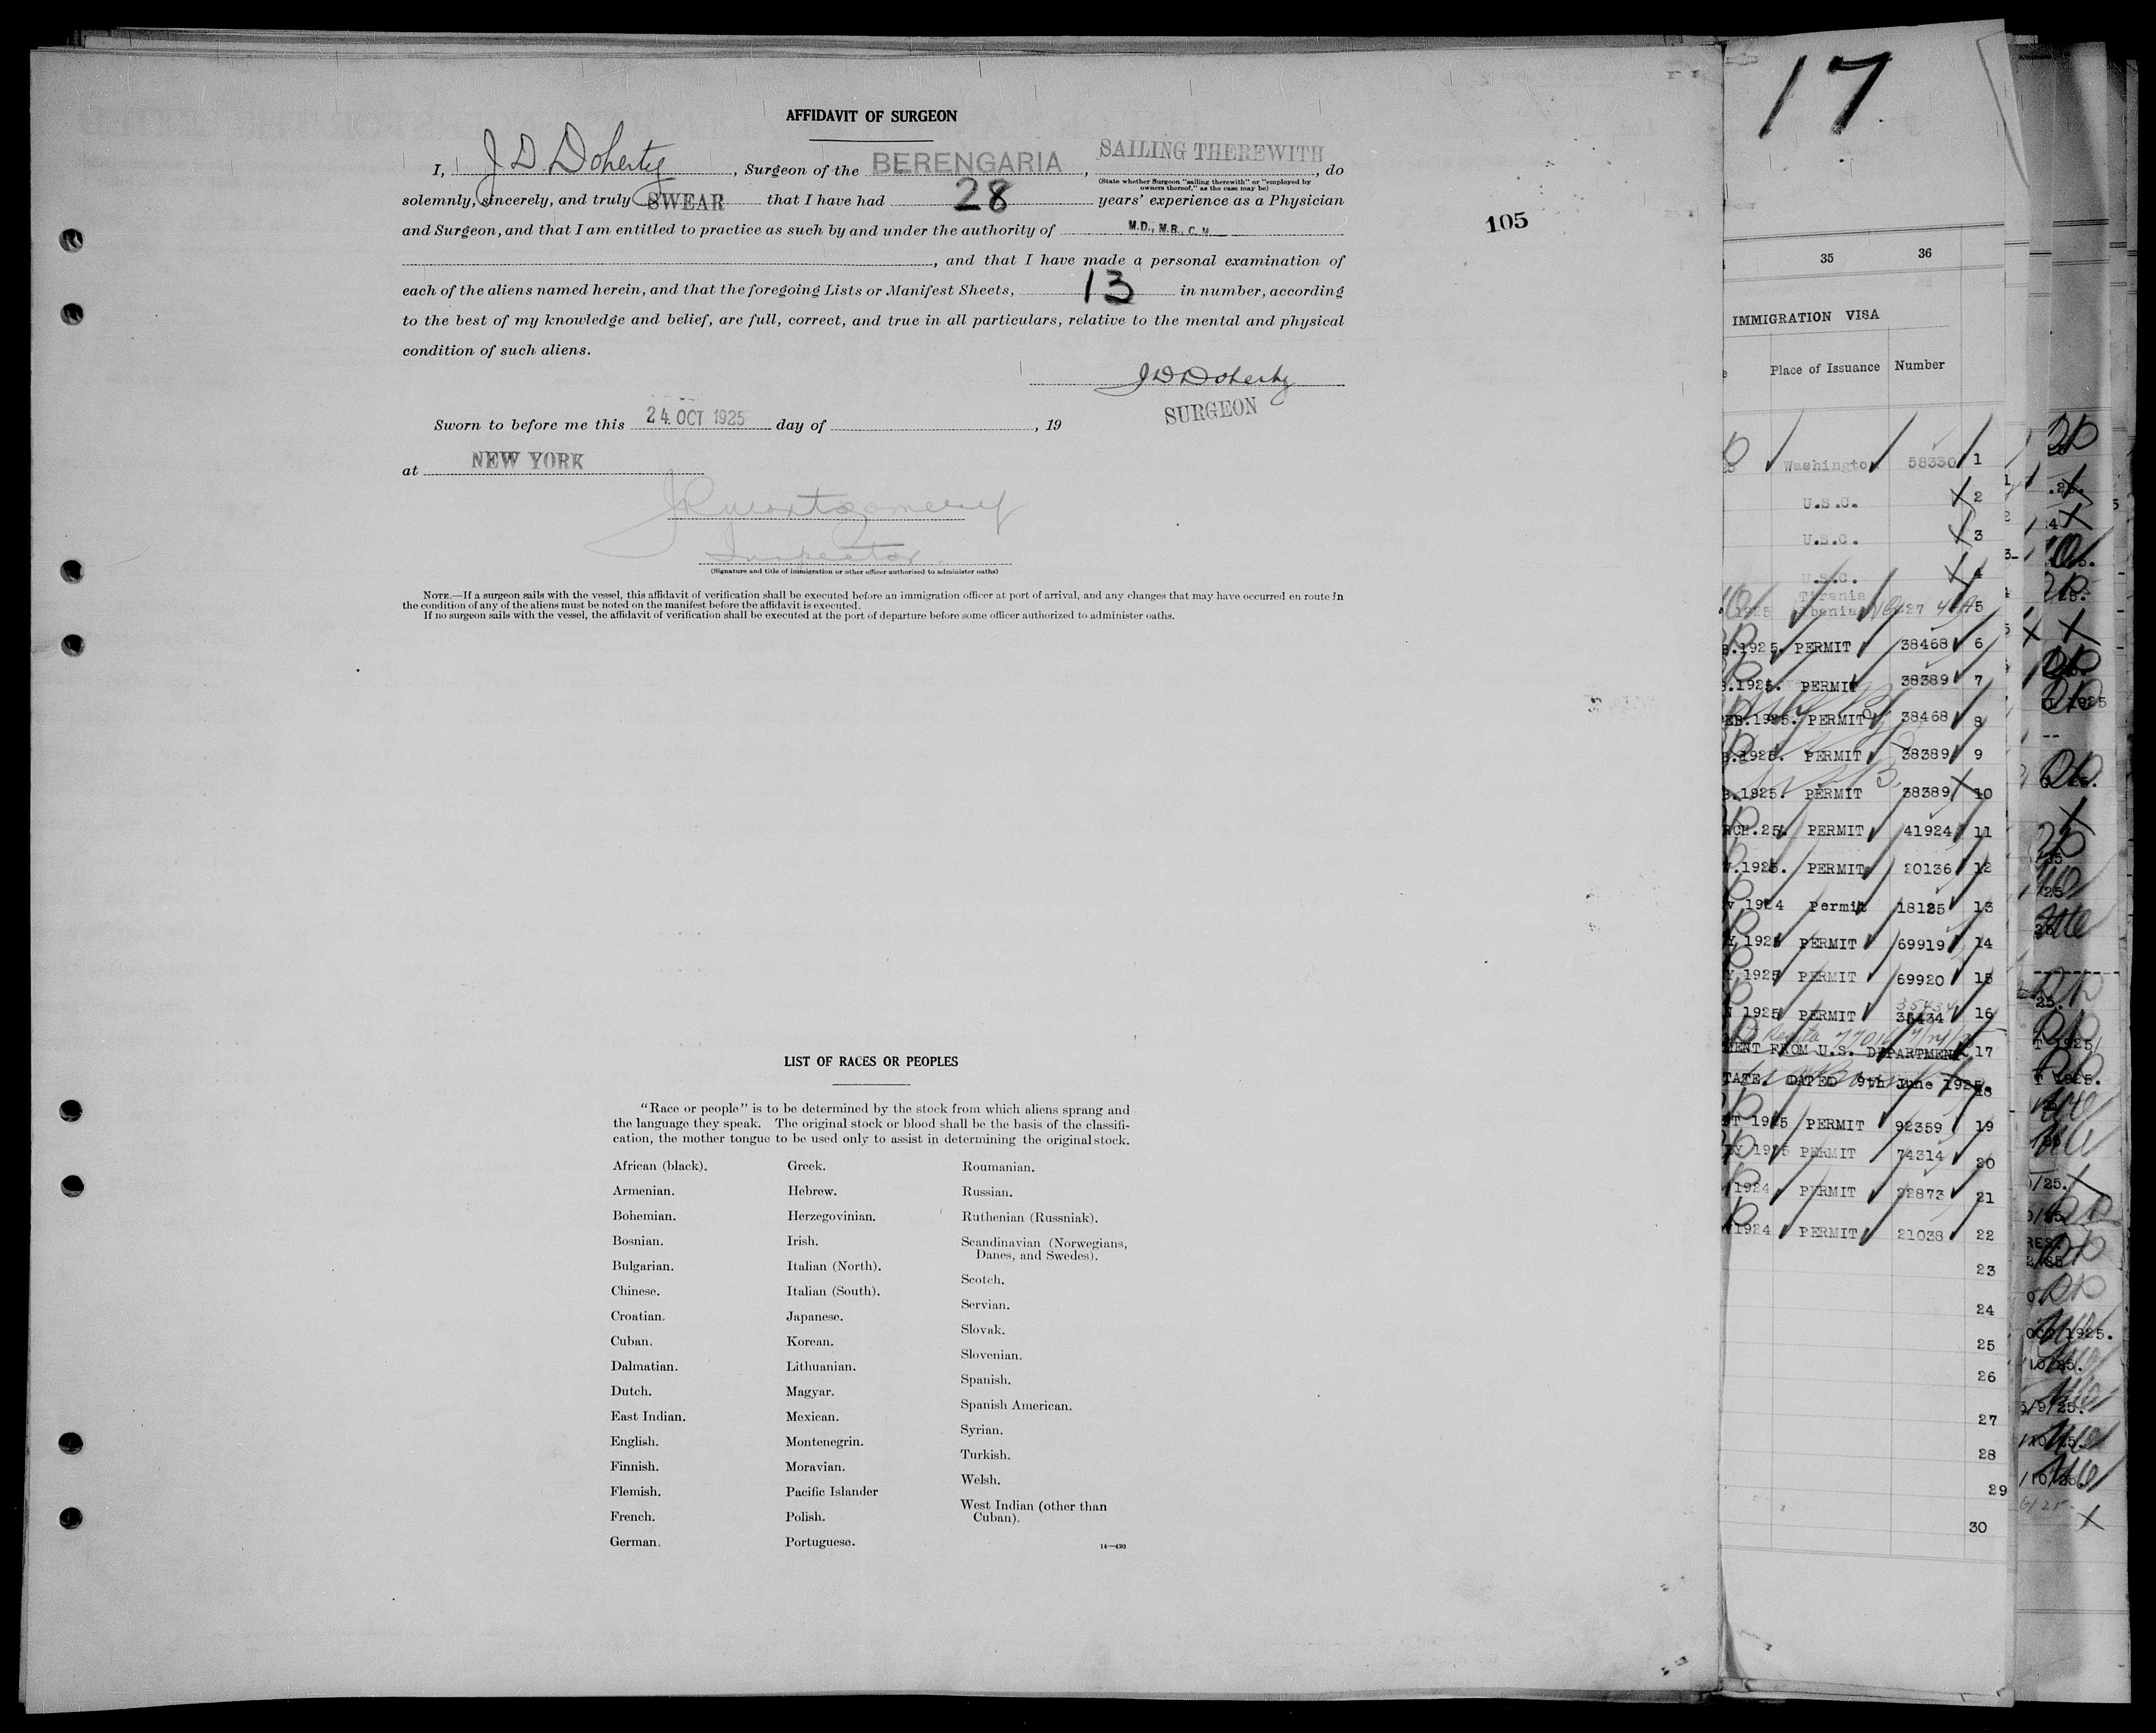 AFFIDAVIT OF SURGEON
I, J D. Doherty, Surgeon of the BERENGARIA, SAILING THEREWITH, do
(State whether Surgeon "sailing therewith" or "employed by
owners thereof," as the case may be)
solemnly, sincerely, and truly SWEAR that I have had 28 years' experience as a Physician
and Surgeon, and that I am entitled to practice as such by and under the authority of M.D., M.B., C.M
, and that I have made a personal examination of
each of the aliens named herein, and that the foregoing Lists or Manifest Sheets, 13 in number, according
to the best of my knowledge and belief, are full, correct, and true in all particulars, relative to the mental and physical
condition of such aliens.
J D Doherty
SURGEON
Sworn to before me this 24. OCT 1925 day of , 19
at NEW YORK
Montgomery
Inspector
(Signature and title of immigration or other officer authorized to administer oaths)
NOTE.—If a surgeon sails with the vessel, this affidavit of verification shall be executed before an immigration officer at port of arrival, and any changes that may have occurred en route in
the condition of any of the aliens must be noted on the manifest before the affidavit is executed.
If no surgeon sails with the vessel, the affidavit of verification shall be executed at the port of departure before some officer authorized to administer oaths.
105
LIST OF RACES OR PEOPLES
"Race or people" is to be determined by the stock from which aliens sprang and
the language they speak. The original stock or blood shall be the basis of the classifi-
cation, the mother tongue to be used only to assist in determining the original stock.
African (black).
Armenian.
Bohemian.
Bosnian.
Bulgarian.
Chinese.
Croatian.
Cuban.
Dalmatian.
Dutch.
East Indian.
English.
Finnish.
Flemish.
French.
German.
Greek.
Hebrew.
Herzegovinian.
Irish.
Italian (North).
Italian (South).
Japanese.
Korean.
Lithuanian.
Magyar.
Mexican.
Montenegrin.
Moravian.
Pacific Islander
Polish.
Portuguese.
Roumanian.
Russian.
Ruthenian (Russniak).
Scandinavian (Norwegians,
Danes, and Swedes).
Scotch.
Servian.
Slovak.
Slovenian.
Spanish.
Spanish American.
Syrian.
Turkish.
Welsh.
West Indian (other than
Cuban).
14—430
17
35 36
IMMIGRATION VISA
Place of Issuance Number
Washington 58330 1
U.S.C. 2
U.S.C. 3
U.S.C. 4
Tirania
5
.1925. PERMIT 38468 6
.1925. PERMIT 38389 7
EB.1925. PERMIT 38468 8
.1925. PERMIT 38389 9
.1925. PERMIT 38389 10
RCH.25. PERMIT 41924 11
.1925. PERMIT 20136 12
1924 Permit 18125 13
Y 1925 PERMIT 69919 14
Y 1925 PERMIT 69920 15
35434
N 1925 PERMIT 35434 16
MENT FROM U.S. DEPARTMENT 17
TATE. DATED 9th June 1925. 18
T 1925 PERMIT 92359 19
Y 1925 PERMIT 74314 20
1924 PERMIT 22873 21
1924 PERMIT 21038 22
23
24
25
26
27
28
29
30